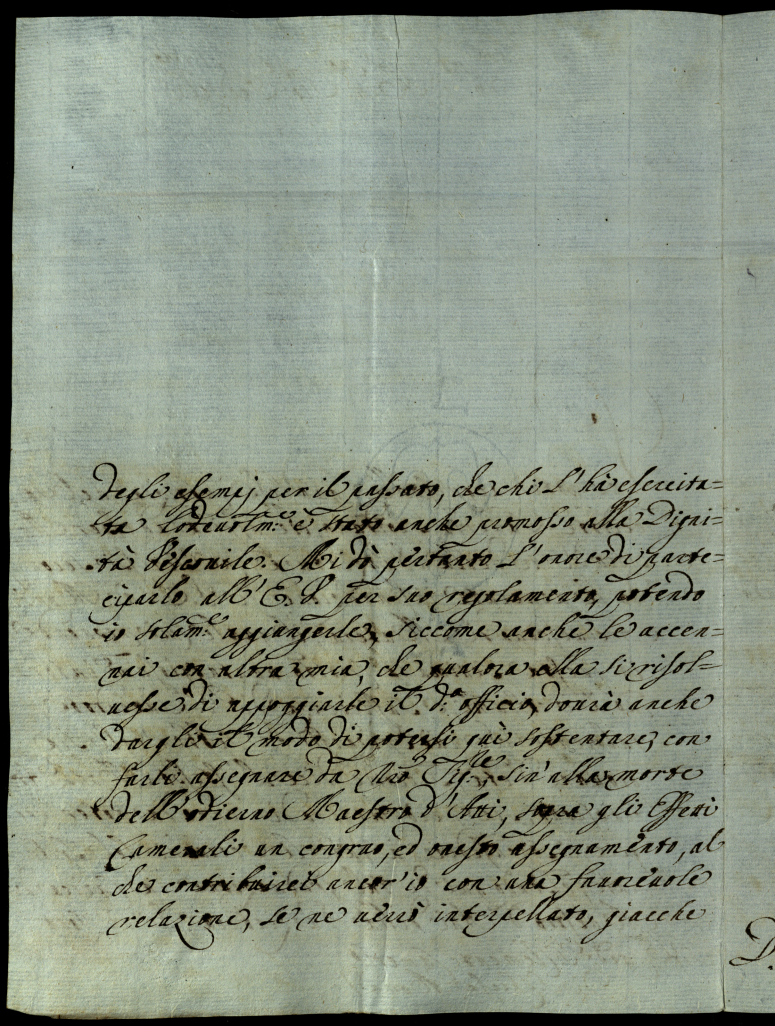 degli esempj per il passato, che chi l'hà esercita=
ta lodevolm:e è stato anche promosso alla Digni=
tà Vescovile. Mi dò pertanto l'onore di parte=
ciparlo all'E. V. per suo regolamento, potendo
io solam:e aggiungerle, siccome anche le accen=
nai con altra mia, che qualora ella si risol=
vesse di appoggiarle il d:o officio, dovrà anche
dargli il modo di potersi quì sostentare, con
farli assegnare da Nro Sig:re, sin'alla morte
dell'odierno Maestro d'Atti, sopra gli Effetti
Camerali un congruo, ed onesto assegnamento, al
che contribuirei ancor'io con una favorevole
relazione, se ne verrò interpellato, giacche